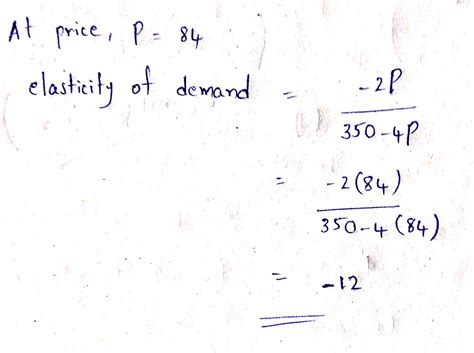 At price, P = 84
elasticity of demand = -2P / 350-4P
= -2(84) / 350-4(84)
= -12